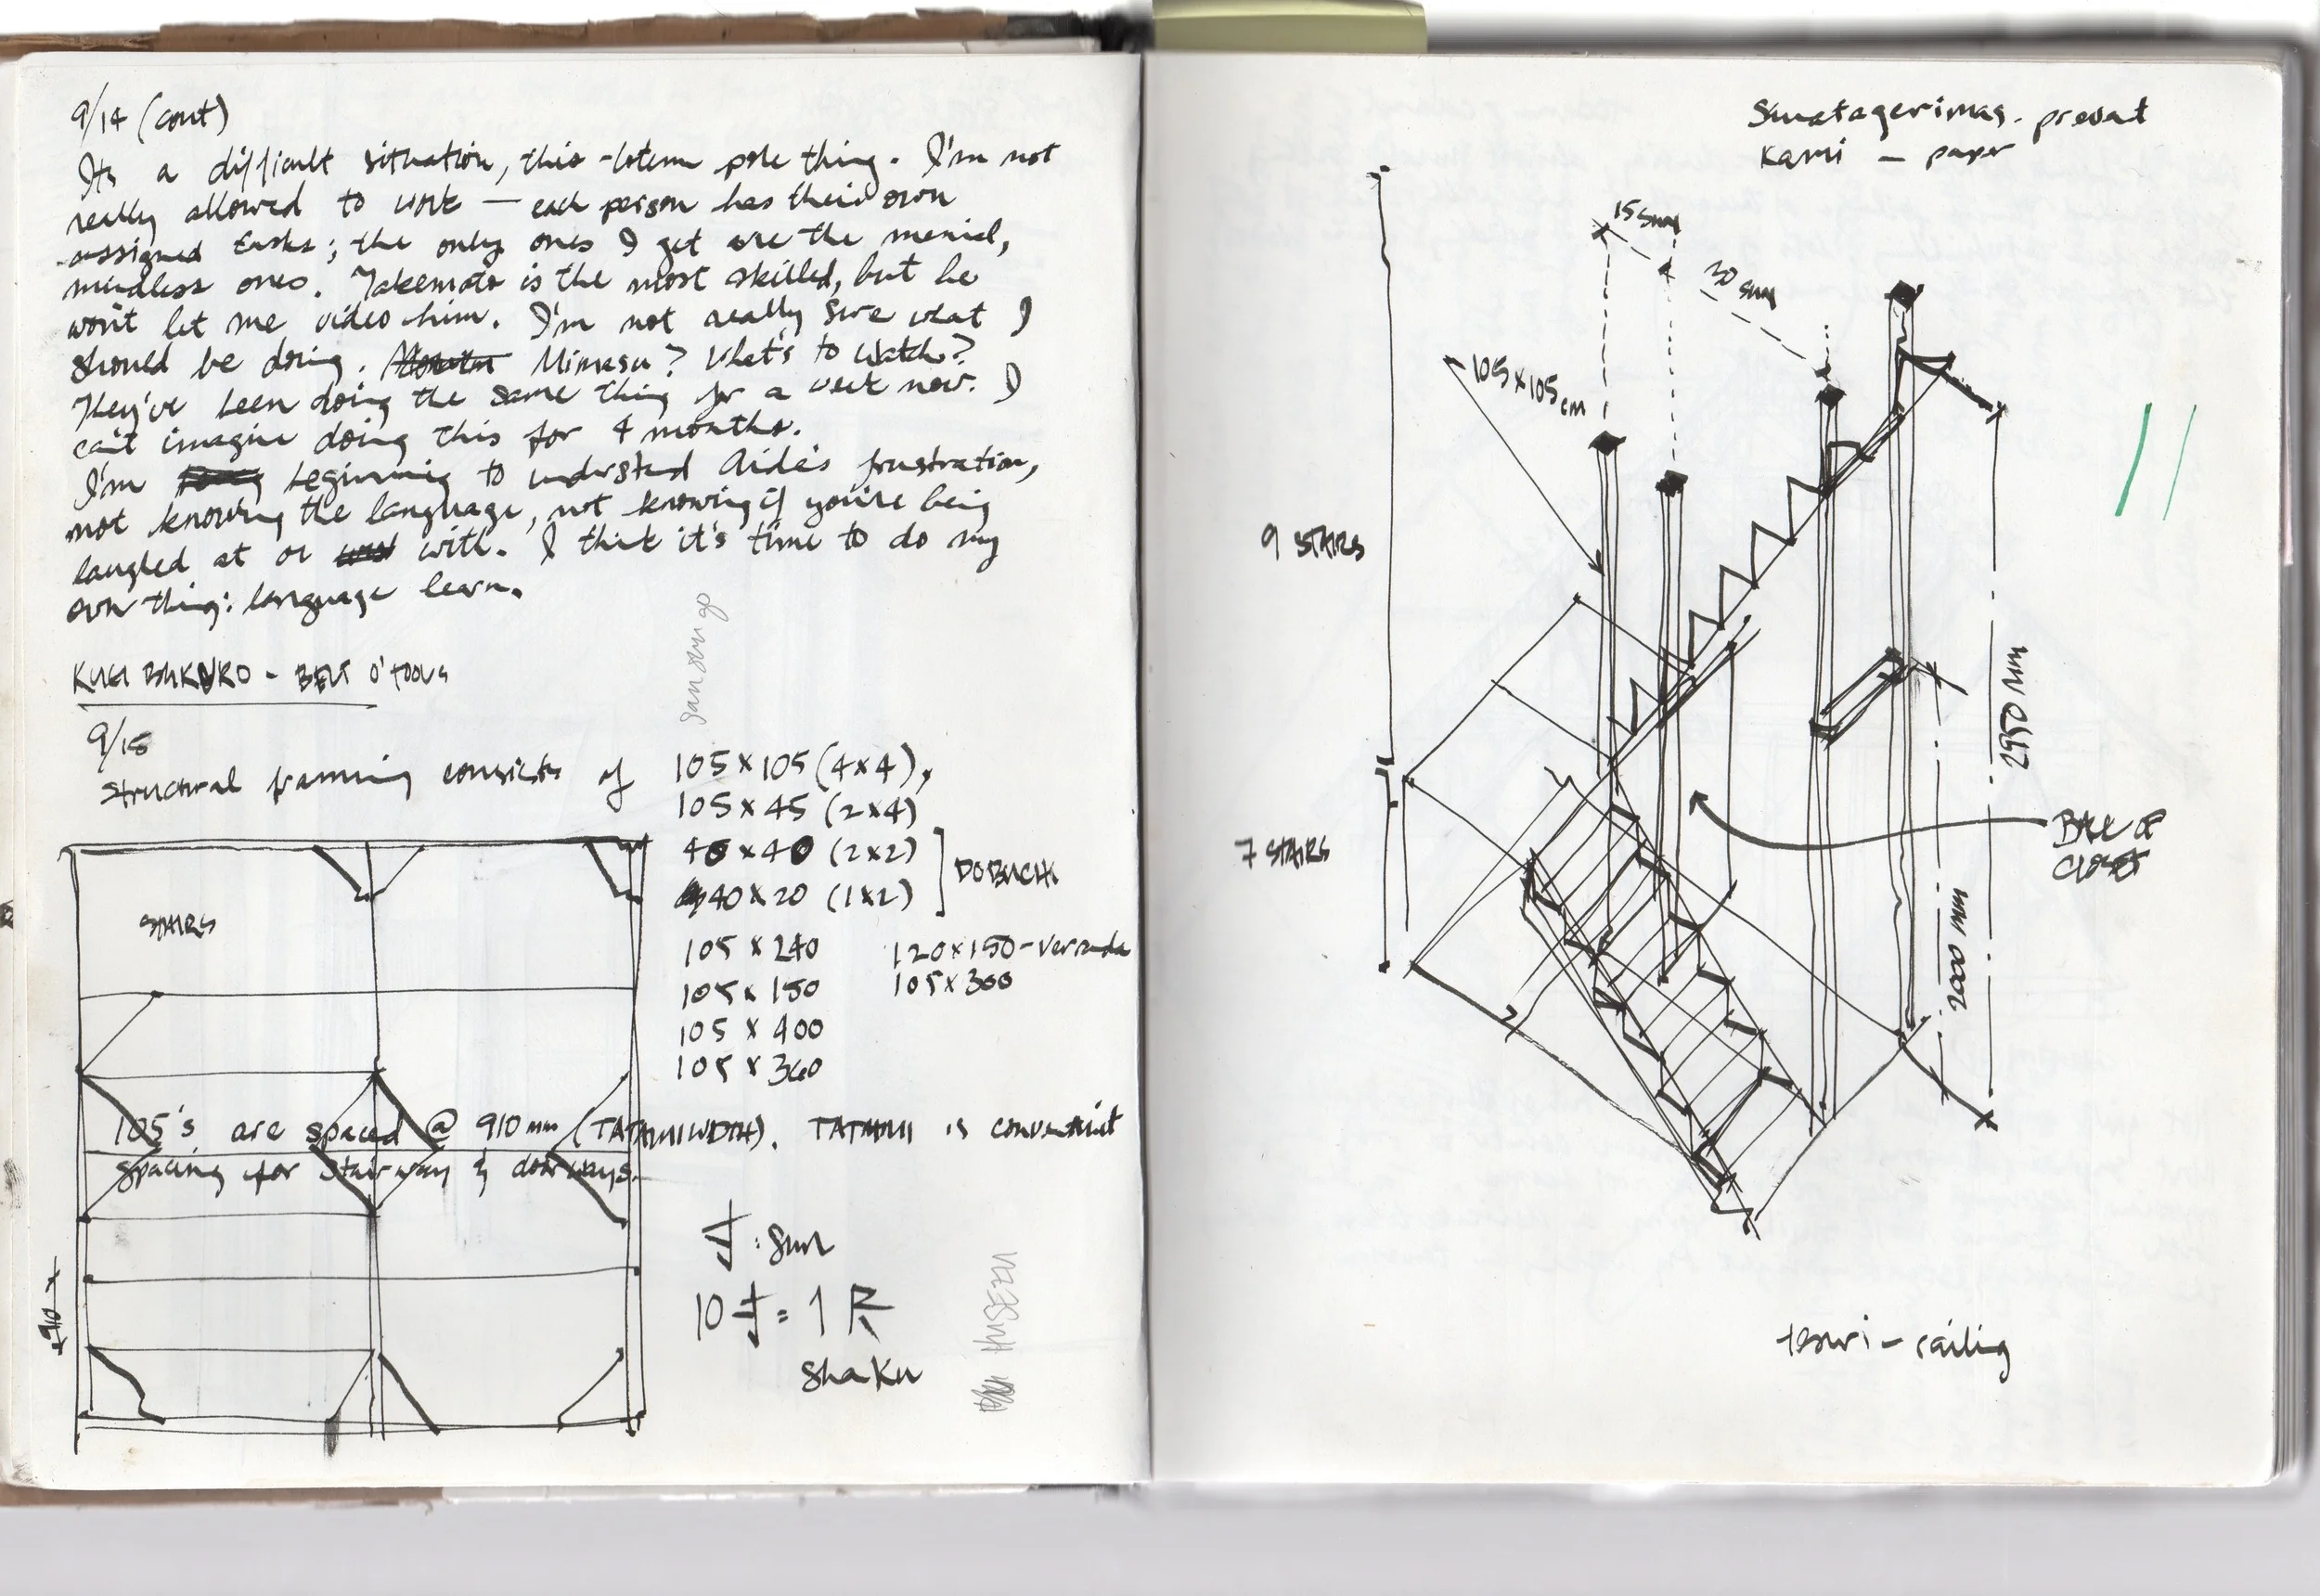 9/14 (cont)
Its a difficult situation, this totem pole thing. I'm not
really allowed to work — each person has their own
assigned tasks; the only ones I get are the menial,
mindless ones. Takemoto is the most skilled, but he
won't let me video him. I'm not really sure what I
should be doing. Mimasu? What's to watch?
They've been doing the same thing for a week now. I
can't imagine doing this for 4 months.
I'm beginning to understand Aide's frustration,
not knowing the language, not knowing if you're being
laughed at or with. I think it's time to do my
own thing: language learn.
KUGI BUKURO - BELT O' TOOLS
9/15
Structural framing consists of 105 x 105 (4x4),
105 x 45 (2x4)
40 x 40 (2x2)
40 x 20 (1x2)
DOBUCHI
105 x 240
105 x 150
105 x 400
105 x 360
120x150 - Veranda
105 x 300
STAIRS
105's are spaced @ 910 mm (TATAMI WIDTH). TATAMI is convenient
spacing for stairway & doorways.
910
寸 : sun
10 寸 = 1 尺
Shaku
prevent
Kami — paper
15 sun
30 sun
105 x 105 cm
9 STAIRS
7 STAIRS
2950 mm
2000 mm
BACK OF
CLOSET
tesuri - railing